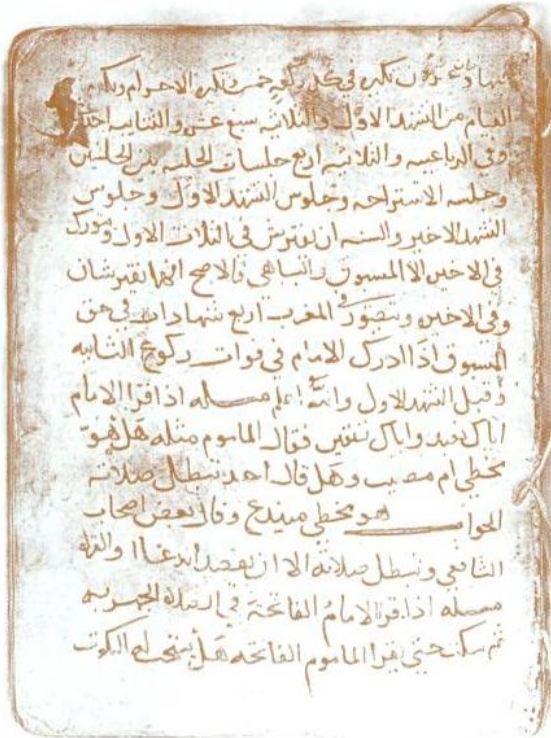 تكبيره في كل ركعة خمس وتكبيرة الاحرام وتكبيرة
القيام من التشهد الاول والثلاثيه سبع عشر والثنايه احد
وفي الرباعيه والثلاثيه اربع جلسات الجلسه بين الجلستين
وجلسه الاستراحه وجلوس التشهد الاول وجلوس
التشهد الاخير والسنه ان يفترش في الثلاث الاول ويتورك
في الاخير الا المسبوق والساهي فالاصح انهما يفترشان
وفي الاخير ويتصور في المغرب اربع تشهادات في حق
المسبوق اذا ادرك الامام في فوات ركوع الثانيه
وقبل التشهد الاول والله اعلم مسله اذا قرا الامام
اياك نعبد واياك نستعين فقال الماموم مثله هل هو
مخطي ام مصيب وهل قال احد تبطل صلاته
الجواب هو مخطي مبتدع وقال بعض اصحاب
الشافعي وتبطل صلاته الا ان يقصد الدعاا والتلاوة
مسله اذا قرا الامام الفاتحة في الصلاة الجهريه
ثم سكت حتي يقرا الماموم الفاتحه هل يستحب له السكوت